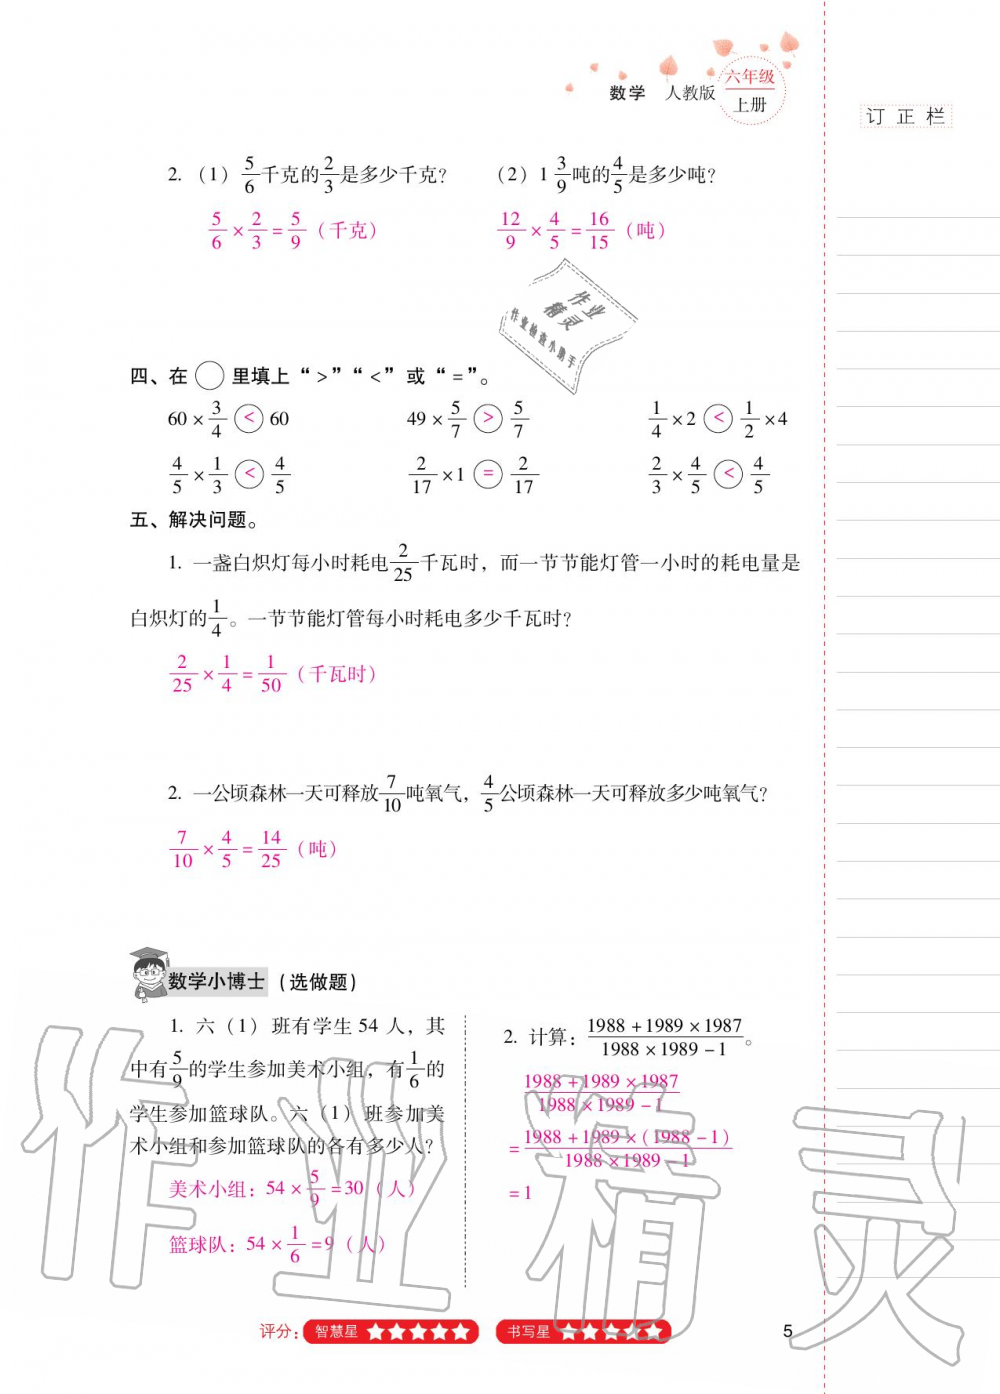 数学 人教版 六年级 上册
订正栏
2. (1) 5/6千克的2/3是多少千克? (2) 1 3/9吨的4/5是多少吨?
5/6 × 2/3 = 5/9 (千克) 12/9 × 4/5 = 16/15 (吨)
作业精灵
作业检查小助手
四、在 ○ 里填上“>”“<”或“=”。
60 × 3/4 < 60 49 × 5/7 > 5/7 1/4 × 2 < 1/2 × 4
4/5 × 1/3 < 4/5 2/17 × 1 = 2/17 2/3 × 4/5 < 4/5
五、解决问题。
1. 一盏白炽灯每小时耗电2/25千瓦时，而一节节能灯管一小时的耗电量是
白炽灯的1/4。一节节能灯管每小时耗电多少千瓦时?
2/25 × 1/4 = 1/50 (千瓦时)
2. 一公顷森林一天可释放7/10吨氧气，4/5公顷森林一天可释放多少吨氧气?
7/10 × 4/5 = 14/25 (吨)
数学小博士 (选做题)
1. 六(1)班有学生54人，其
中有5/9的学生参加美术小组，有1/6的
学生参加篮球队。六(1)班参加美
术小组和参加篮球队的各有多少人?
美术小组：54 × 5/9 = 30 (人)
篮球队：54 × 1/6 = 9 (人)
2. 计算：(1988 + 1989 × 1987)/(1988 × 1989 − 1)。
(1988 + 1989 × 1987)/(1988 × 1989 − 1)
= (1988 + 1989 × (1988 − 1))/(1988 × 1989 − 1)
= 1
作业精灵
评分：智慧星 ★★★★★ 书写星 ★★★★★
5